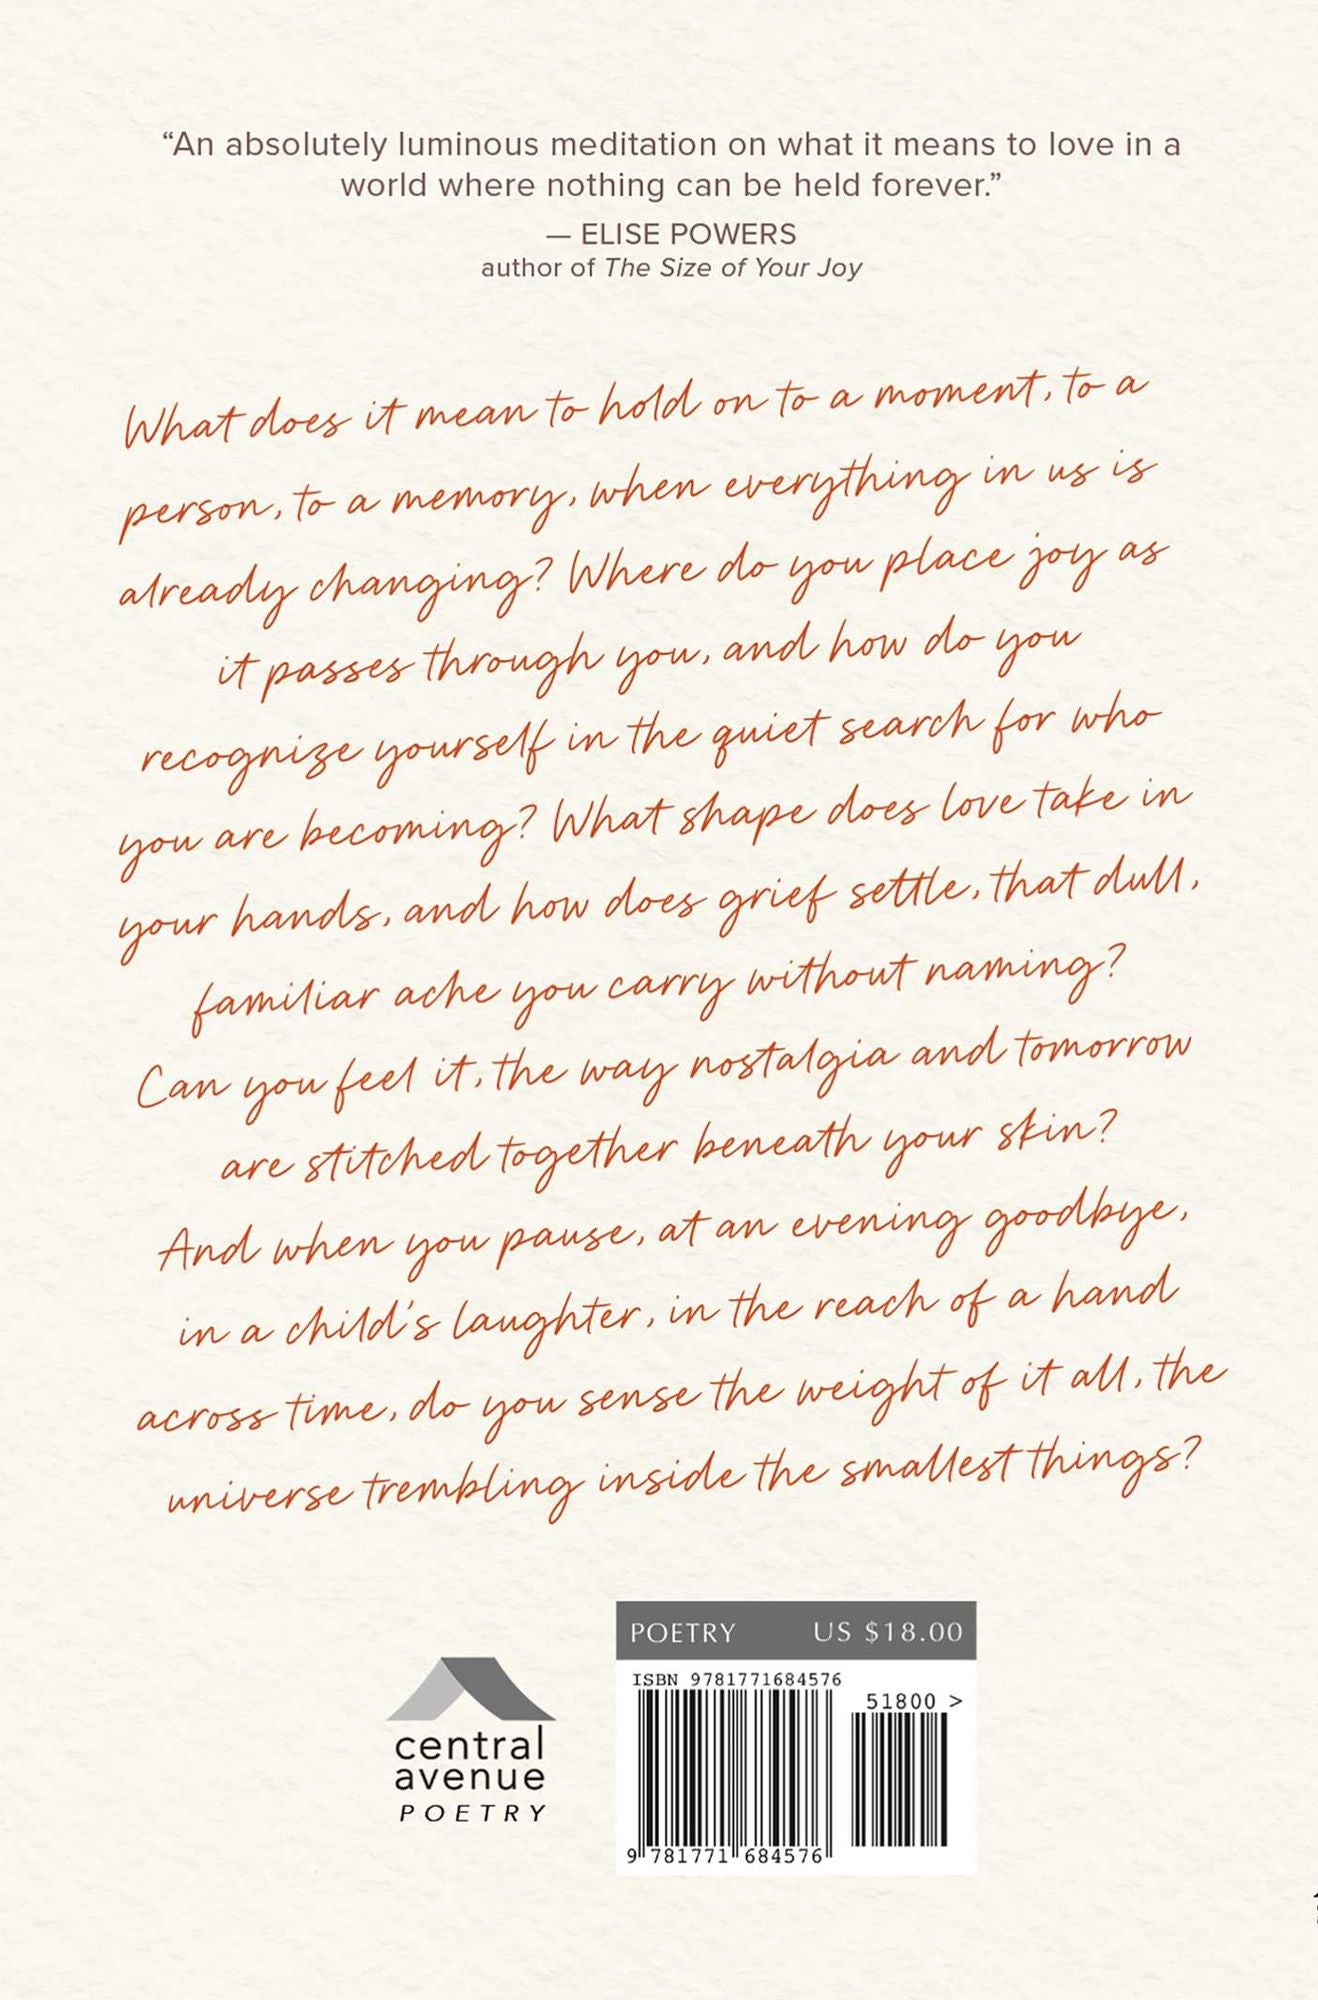 “An absolutely luminous meditation on what it means to love in a
world where nothing can be held forever.”
— ELISE POWERS
author of The Size of Your Joy
What does it mean to hold on to a moment, to a
person, to a memory, when everything in us is
already changing? Where do you place joy as
it passes through you, and how do you
recognize yourself in the quiet search for who
you are becoming? What shape does love take in
your hands, and how does grief settle, that dull,
familiar ache you carry without naming?
Can you feel it, the way nostalgia and tomorrow
are stitched together beneath your skin?
And when you pause, at an evening goodbye,
in a child's laughter, in the reach of a hand
across time, do you sense the weight of it all, the
universe trembling inside the smallest things?
central
avenue
POETRY
POETRY US $18.00
ISBN 9781771684576
51800 >
9 781771 684576